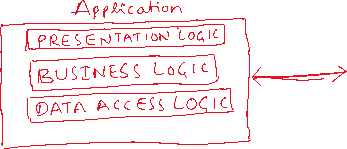 Application
PRESENTATION LOGIC
BUSINESS LOGIC
DATA ACCESS LOGIC